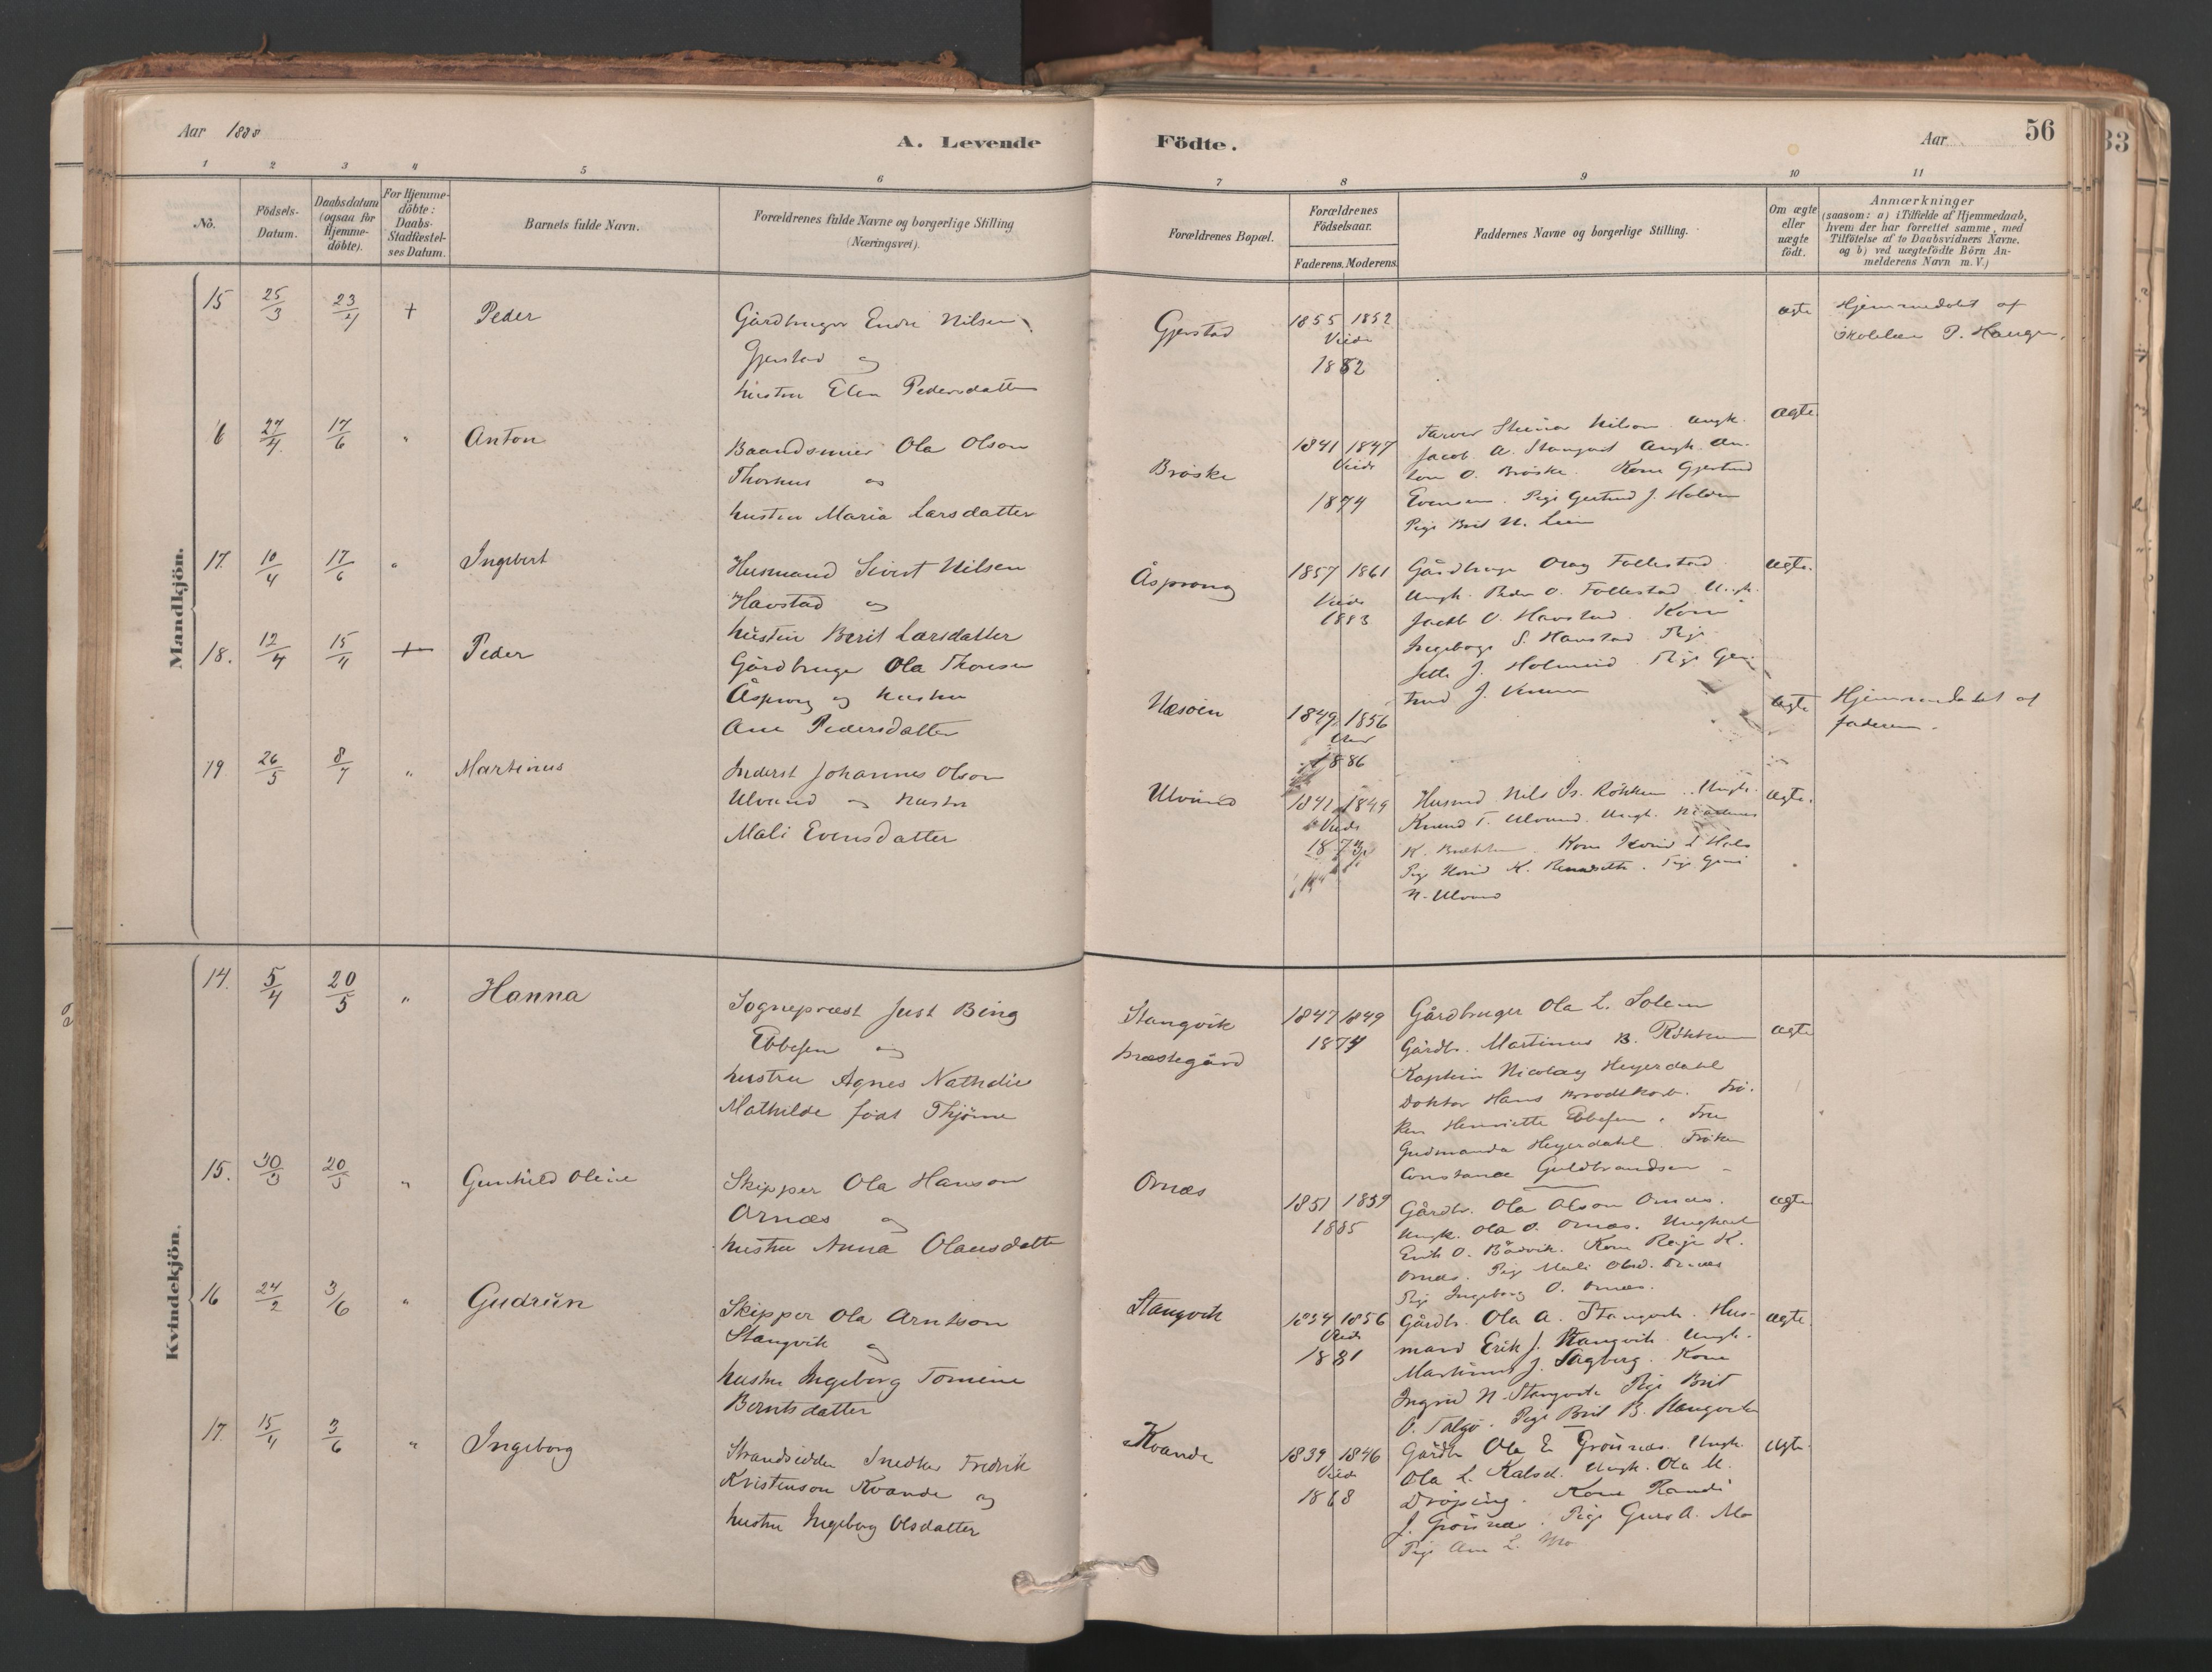 Aar 1888
A. Levende Födte.
Aar
56
33
1 2 3 4 5 6 7 8 9 10 11
No.
Födsels-Datum.
Daabsdatum (ogsaa for Hjemme-döbte).
For Hjemme-döbte: Daabs-Stadfæstel-ses Datum.
Barnets fulde Navn.
Forældrenes fulde Navne og borgerlige Stilling (Næringsvei).
Forældrenes Bopæl.
Forældrenes Födselsaar.
Faderens. Moderens.
Faddernes Navne og borgerlige Stilling.
Om ægte eller uægte födt.
Anmærkninger
(saasom: a) i Tilfælde af Hjemmedaab,
hvem der har forrettet samme, med
Tilföielse af to Daabsvidners Navne,
og b) ved uægtefödte Börn An-
melderens Navn m. V.)
Mandkjön.
15 25/3 23/4 + Peder
Gårdbruger Endre Nilsen
Gjerstad og
hustru Elen Pedersdatter
Gjerstad
1855 1852
Viede
1882
ægte
Hjemmedøbt af
P. Haugen.
6 27/4 17/6 " Anton
Baandsmier Ola Olson
Thorhus og
hustru Maria Larsdatter
Brøske
1841 1847
Viede
1874
Nilson. Ungk.
Jacob A. Stangvik Ungk. An-
ton O. Brøske. Kone Gjertrud
Evensen. Pige Gertrud J. Halden
Pige Brit N. Lien
ægte
17. 10/4 17/6 " Ingebert
Husmand Sivert Nilsen
Havstad og
hustru Berit Larsdatter
Åsprong
1857 1861
Viede
1883
Gårdbruger Follestad
Ungk. Peder O. Follestad Ungk.
Jacob O. Havstad. Kone
Ingeborg S. Havstad. Pige
J. Holmeid. Pige Ger-
trud J.
ægte.
18. 12/4 15/4 + Peder
Gårdbruger Ola Thoresen
Åsprong og hustru
Ane Pedersdatter
Næsøien
1849 1856
1886
ægte
Hjemmedøbt af
faderen.
19 26/5 8/7 " Martinus
Inderst Johannes Olson
Ulvund og hustru
Mali Evensdatter
Ulvund
1841 1849
Viede
1873
Husmd. Nils Is. Røkkum. Ungk.
Knud T. Ulvund. Ungk.
K. Kone L Hals
Pige K. Pige
N. Ulvund
ægte.
Kvindekjön.
14. 5/4 20/5 " Hanna
Sognepræst Just Bing
Ebbesen og
hustru Agnes Nathalie
Mathilde født Thjøme
Stangvik
præstegård
1847 1849
1874
Gårdbruger Ola L. Solem
Gårdbr. Martinus B. Røkkum
Kaptein Nicolay Heyerdahl
Doktor Hans Brodtkorb. Frø-
ken Henriette Ebbesen. Frue
Gudmanda Heyerdahl. Frøken
Constance Guldbrandsen
ægte
15. 30/3 20/5 " Gunhild Oline
Skipper Ola Hanson
Ornæs og
hustru Anna Olausdatter
Ornæs
1851 1859
1885
Gårdbr. Ola Olson Ornæs.
Ungk. Ola O. Ornæs. Ungkarl
Erik O. Båsvik. Kone K.
Ornæs. Pige Mali Olsd. Ornæs
Pige Ingeborg O. Ornæs.
ægte
16 24/2 3/6 " Gudrun
Skipper Ola Arntson
Stangvik og
hustru Ingeborg Tomine
Berntsdatter
Stangvik
1854 1856
Viede
1881
Gårdb. Ola A. Stangvik. Hus-
mand Erik J. Stangvik. Ungk.
Martinus J. Sagberg. Kone
Ingrid N. Stangvik Pige Brit
O. Talgø. Pige Brit B. Stangvik
ægte
17. 15/4 3/6 " Ingeborg
Strandsidder Snedker Fredrik
Kristenson Kvande og
hustru Ingeborg Olsdatter
Kvande
1839 1846
Viede
1868
Gårdb Ola E Grønnes. Ungk.
Ola L. Ungk. Ola M.
Drøping. Kone Randi
J. Grønnes. Pige Guro A. Mo
Pige Ane L. Mo
ægte